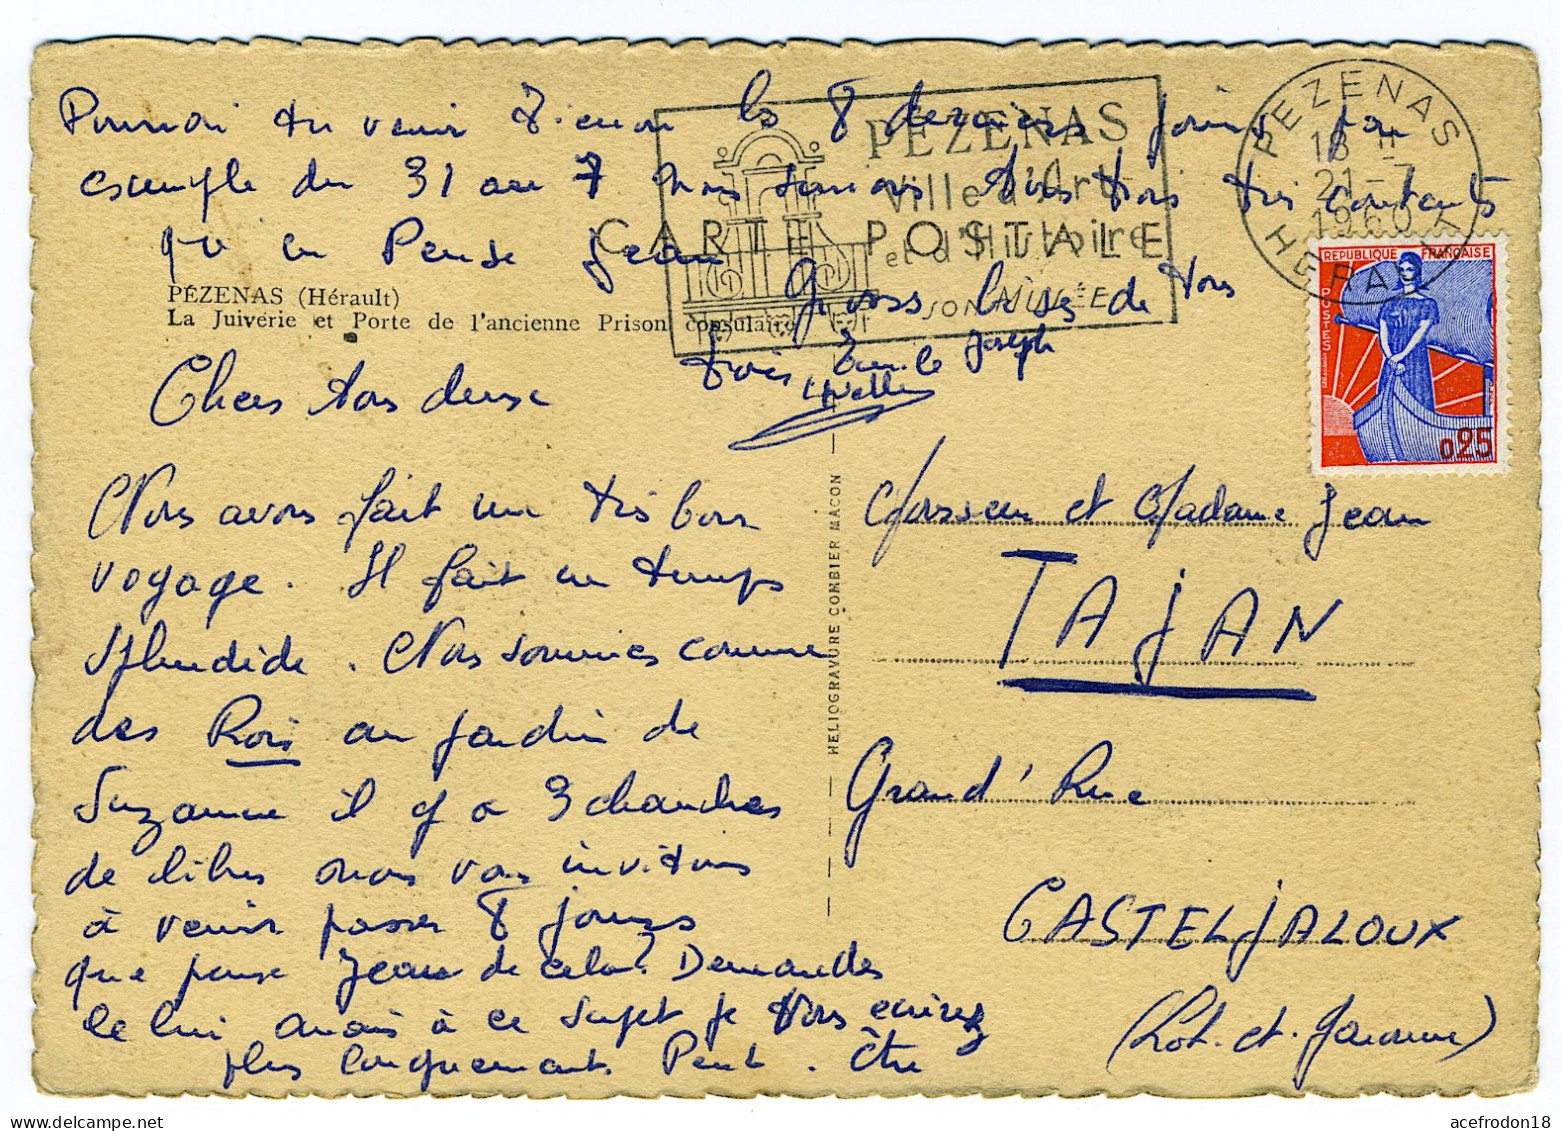 Pourrai tu venir les 8 derniers jours par
exemple du 31 au 7 nous serions tous trois très contents
qu'en Pense Jean
Gross bises de tous
trois, Emile Joseph
PEZENAS
Ville d'Art
et d'Histoire
SON MUSÉE
PEZENAS
18 H
21-7
1960
HERAULT
CARTE POSTALE
REPUBLIQUE FRANÇAISE
POSTES
0,25
PÉZENAS (Hérault)
La Juiverie et Porte de l'ancienne Prison consulaire
Chers tous deux
Nous avons fait un très bon
voyage. Il fait un temps
splendide. Nous sommes comme
des Rois au jardin de
Suzanne il y a 3 chambres
de libres nous vous invitons
à venir passer 8 jours
que pense Jean de cela? Demandes
le lui Anaïs à ce sujet je vous écrirez
plus longuement. Peut-être
HELIOGRAVURE COMBIER MACON
Monsieur et Madame Jean
TAJAN
Grand'Rue
CASTELJALOUX
(Lot-et-Garonne)
acefrodon18